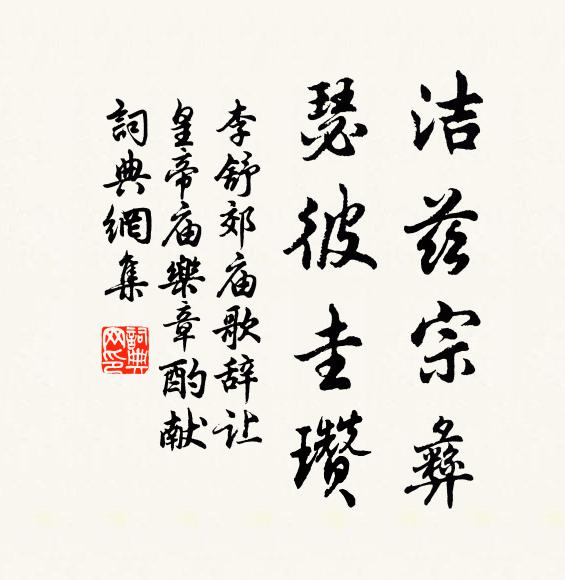 洁兹宗彝
瑟彼圭瓒
李舒郊庙歌辞让
皇帝庙樂章酌献
詞典網集
詞典网印